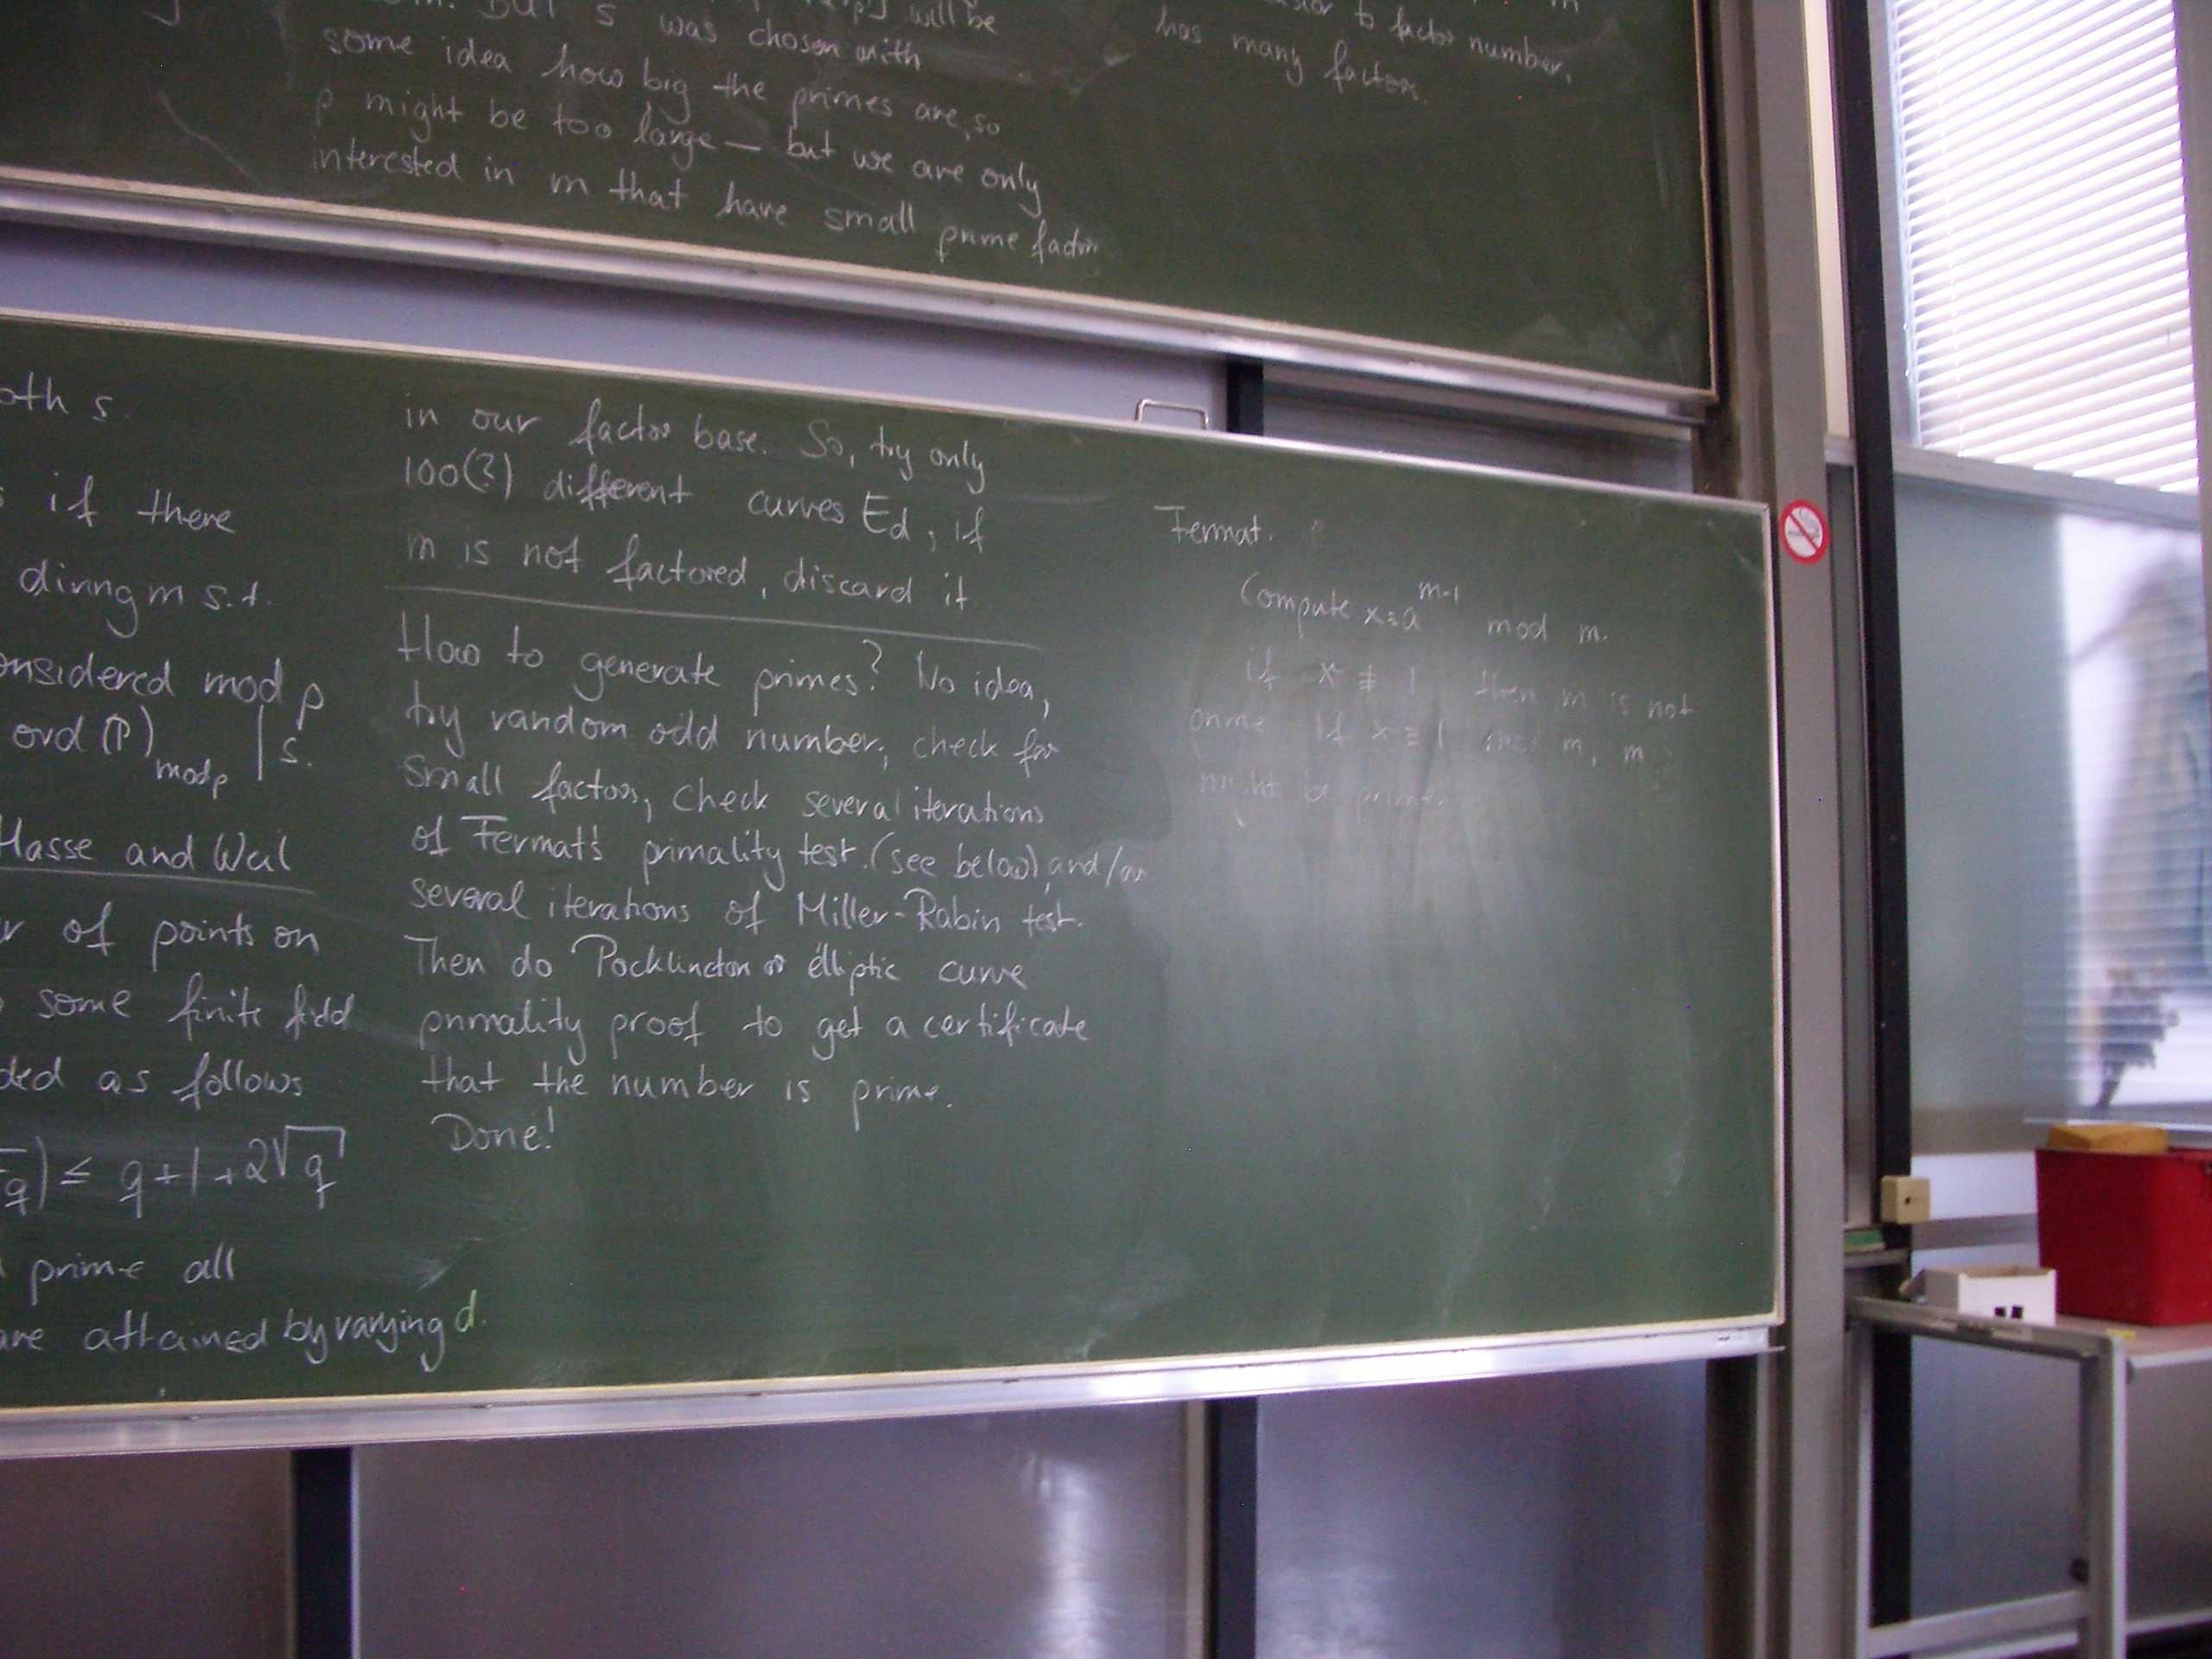 But s was chosen with will be
some idea how big the primes are, so
p might be too large — but we are only
interested in m that have small prime factor
to factor number,
has many factors.
s.
if there
diving m s.t.
considered mod p
ord (P) mod p | s.
Hasse and Weil
of points on
some finite field
as follows
q) ≤ q+1+2√q
prime all
are attained by varying d.
in our factor base. So, try only
100(?) different curves Ed, if
m is not factored, discard it
How to generate primes? No idea,
try random odd number, check for
small factors, check several iterations
of Fermat's primality test. (see below) and/or
several iterations of Miller-Rabin test.
Then do Pocklincton or elliptic curve
primality proof to get a certificate
that the number is prime.
Done!
Fermat.
Compute x≡a^m-1 mod m.
if x ≢ 1 then m is not
prime If x ≡ 1 mod m, m
might be prime.